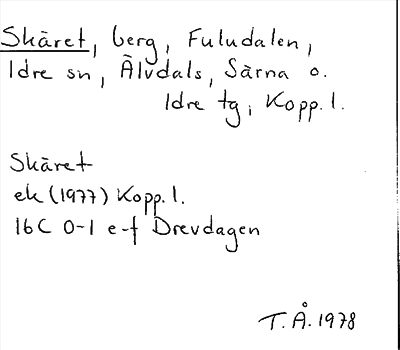 Skäret, berg, Fuludalen,
Idre sn, Älvdals, Särna o.
Idre tg, Kopp. l.
Skäret
ek (1977) Kopp. l.
16C 0-1 e-f Drevdagen
T. Å. 1978